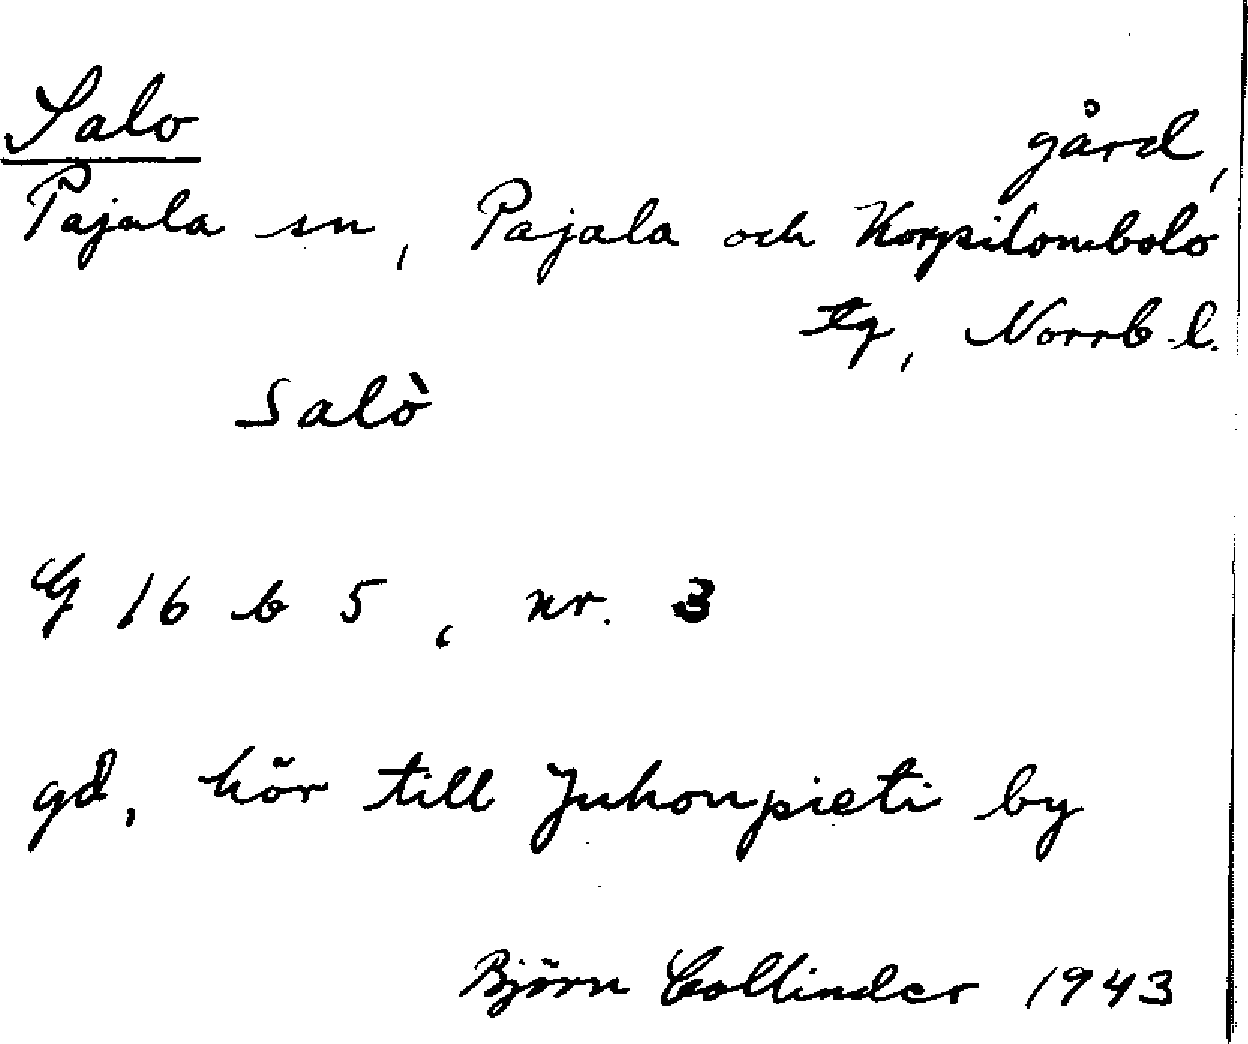 Salo
gård,
Pajala sn, Pajala och Korpilombolo
tg, Norrb. l.
Salò
G 16 b 5, nr. 3
gd, hör till Juhonpieti by
Björn Collinder 1943